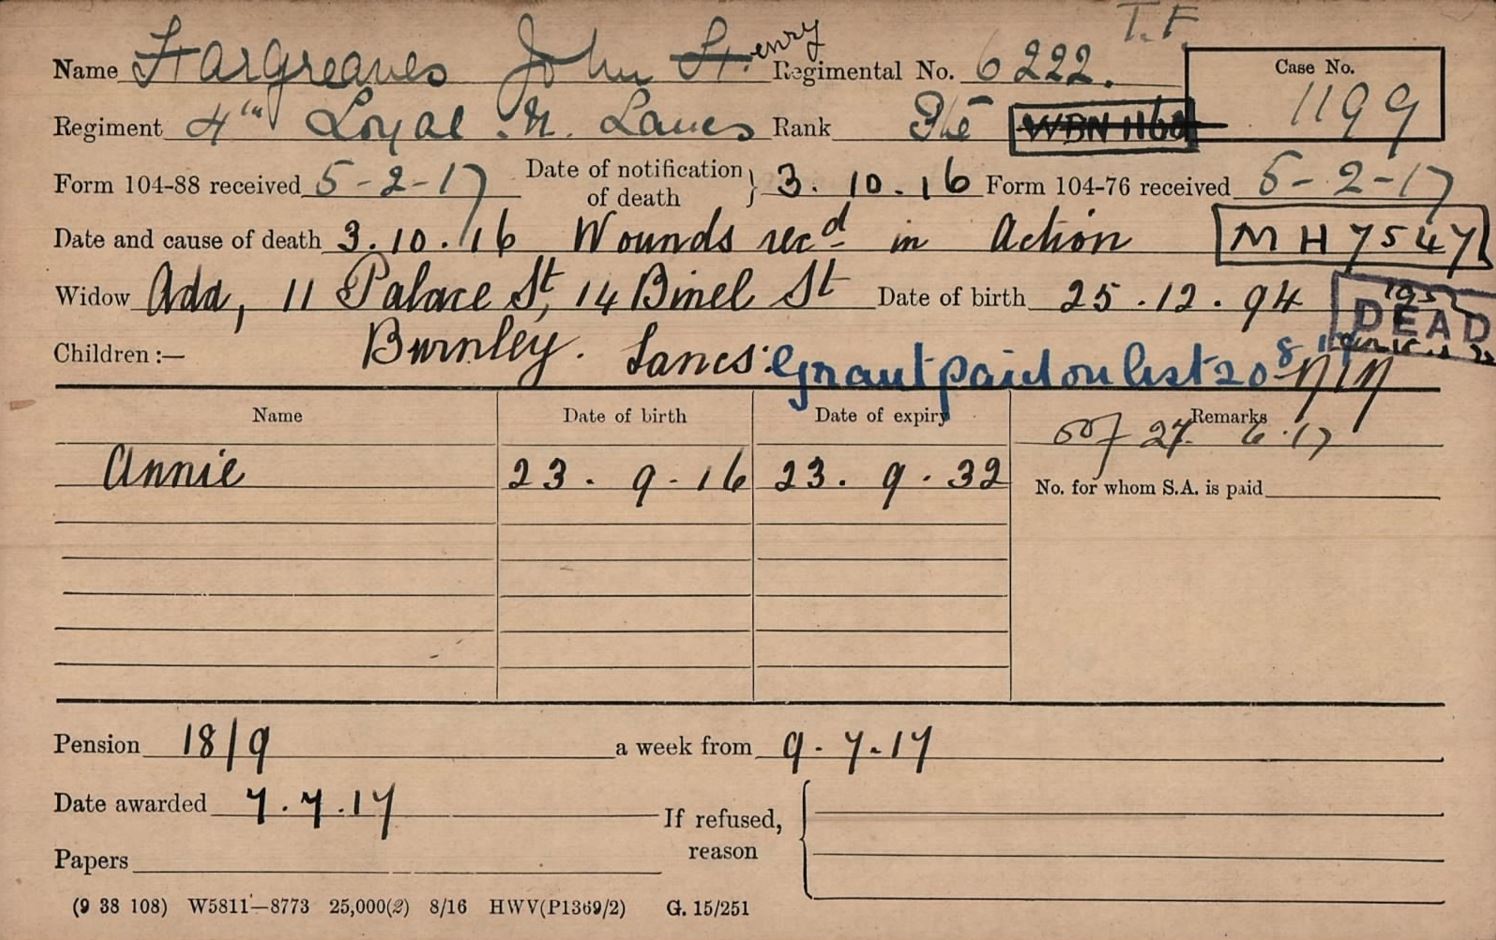 T.F.
Name Hargreaves John Henry Regimental No. 6222. Case No. 1199
Regiment 4th Loyal N. Lancs Rank Pte WBN 1160
Form 104-88 received 5-2-17 Date of notification of death } 3.10.16 Form 104-76 received 5-2-17
Date and cause of death 3.10.16 Wounds recd in Action MH7547
Widow Ada, 11 Palace St, 14 Binel St Date of birth 25.12.94 DEAD
Children :— Burnley. Lancs: Grant paid on list 20
Name Date of birth Date of expiry Remarks
27. 6.17
Annie 23. 9-16 23. 9.32 No. for whom S.A. is paid
Pension 18/9 a week from 9.7.17
Date awarded 7.7.17 If refused,
reason
Papers
(9 38 108) W5811—8773 25,000(2) 8/16 HWV(P1369/2) G. 15/251